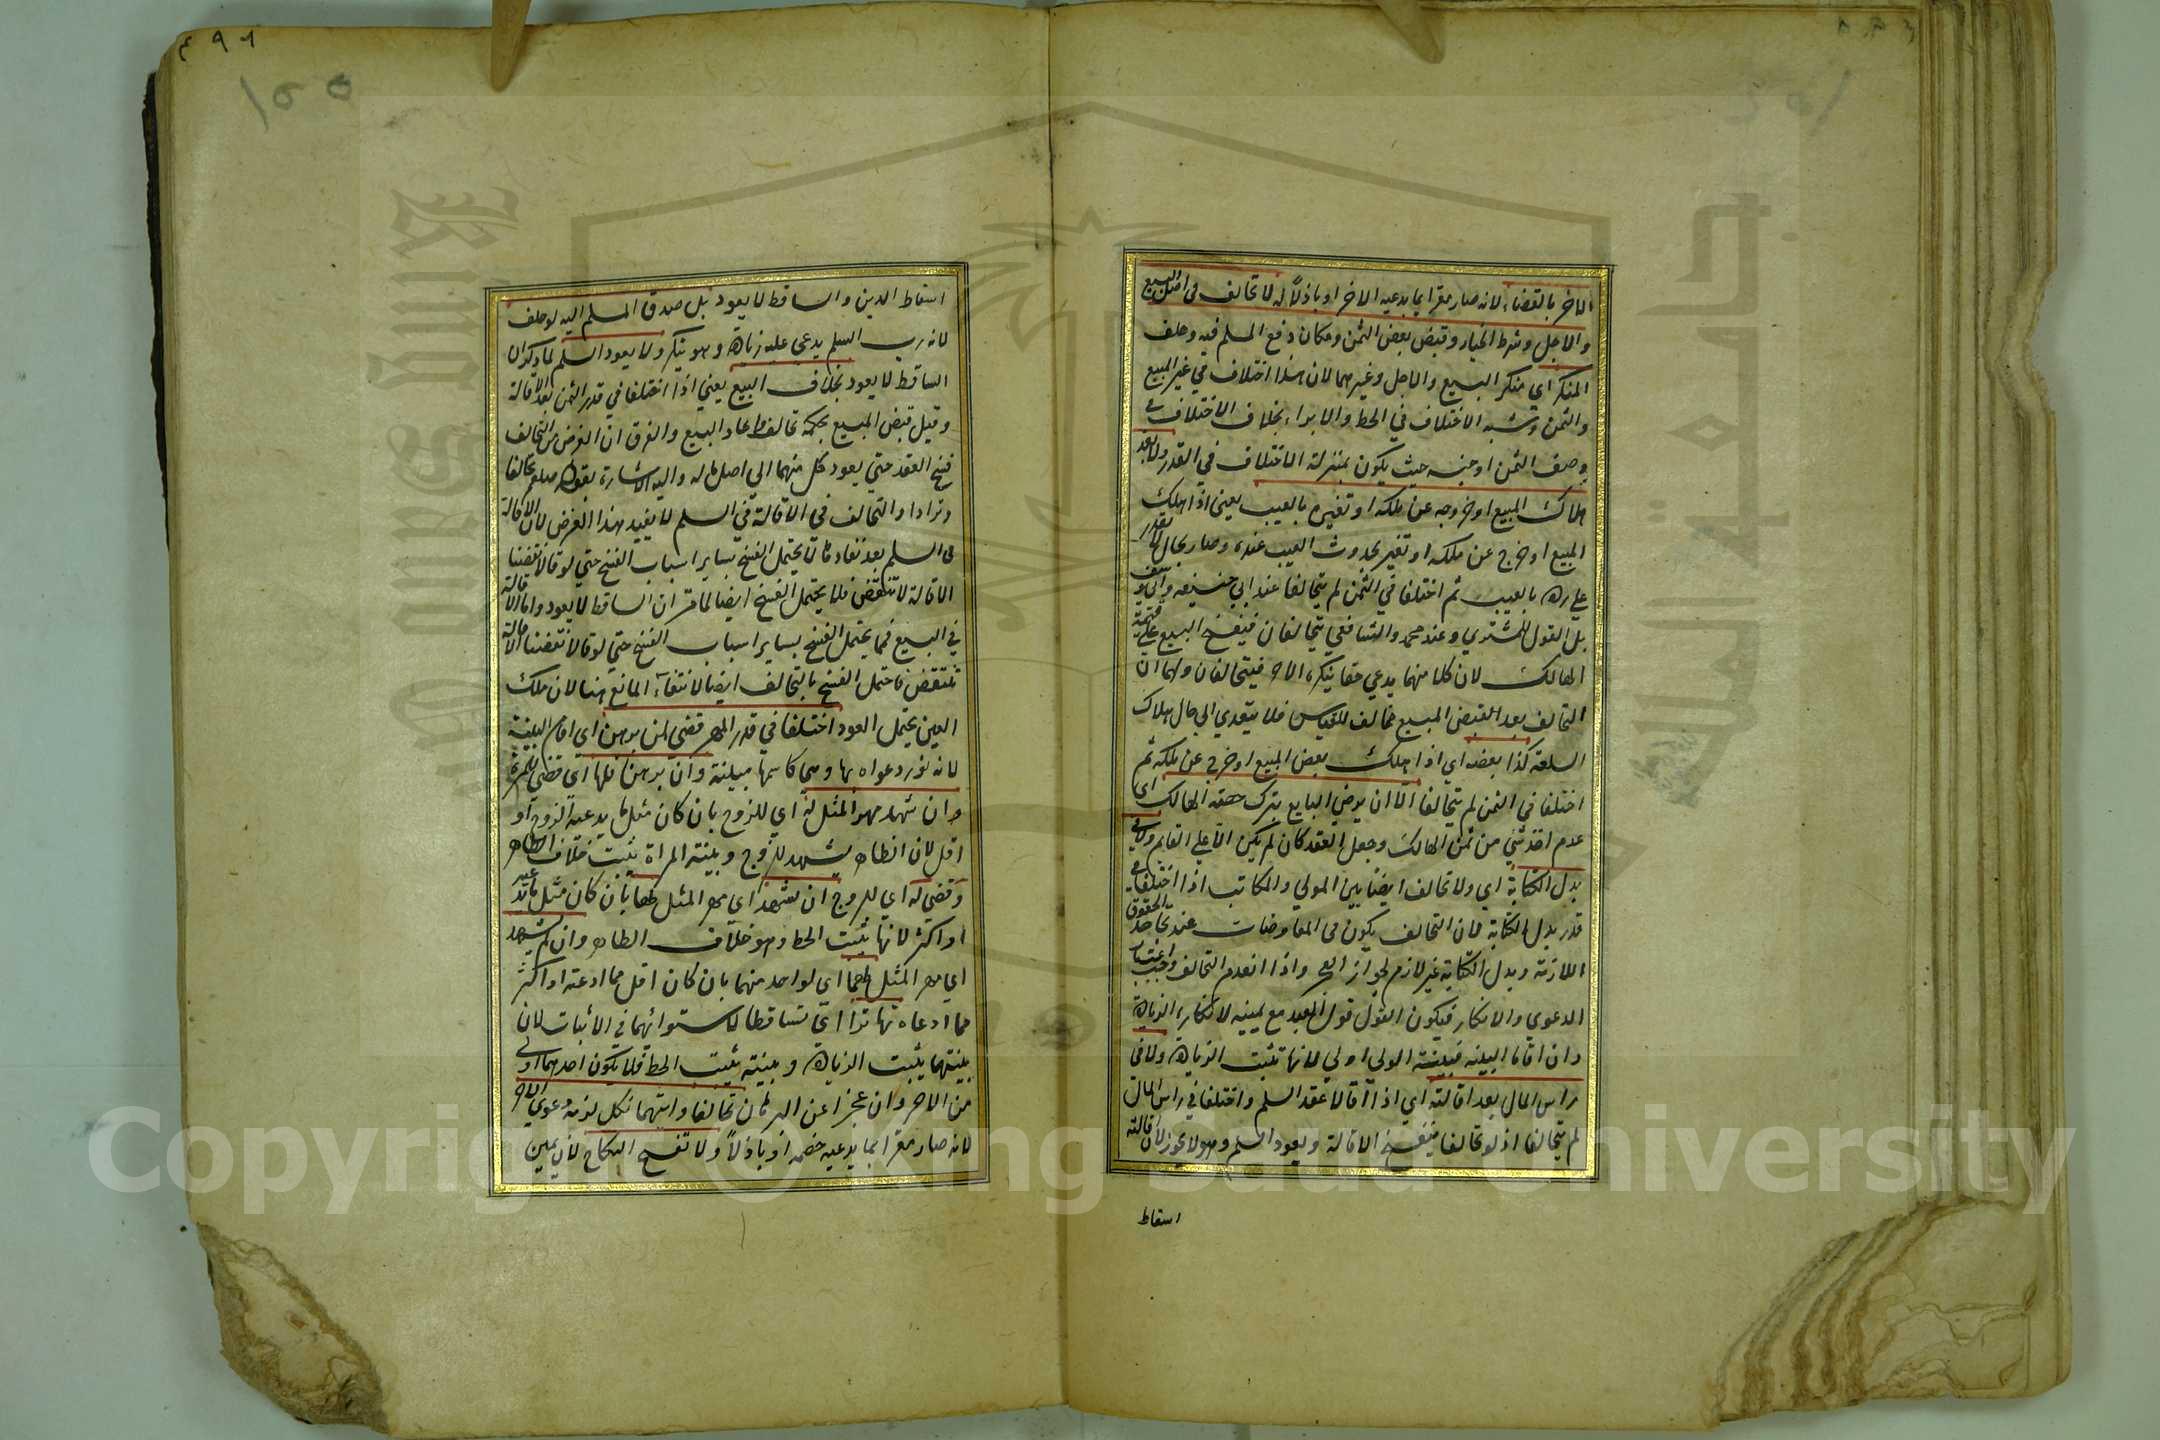 الاخر بالقضاء لانه صار مقرا بما يدعيه الاخر او باذلا له لا تحالف في اصل البيع
والاجل وشرط الخيار وقبض بعض الثمن ومكان دفع المسلم فيه وحلف
المنكر اي منكر البيع والاجل وغيرهما لان هذا اختلاف في غير المبيع
والثمن ويشبه الاختلاف في الحط والابراء بخلاف الاختلاف في
وصف الثمن او جنسه حيث يكون بمنزلة الاختلاف في القدر ولا بعد
هلاك المبيع او خروجه عن ملكه او تغيره بالعيب يعني اذا هلك
المبيع او خرج عن ملكه او تغير بحدوث العيب عنده وصار بحال لا يقدر
علي رده بالعيب ثم اختلفا في الثمن لم يتحالفا عند ابي حنيفه وابي يوسف
بل القول للمشتري وعند محمد والشافعي يتحالفان فيفسخ البيع علي قيمة
الهالك لان كلا منهما يدعي حقا ينكره الاخر فيتحالفان ولهما ان
التحالف بعد القبض المبيع مخالف للقياس فلا يتعدي الي حال هلاك
السلعة كذا بعضه اي اذا هلك بعض المبيع او خرج عن ملكه ثم
اختلفا في الثمن لم يتحالفا الا ان يرضي البايع بترك حصة الهالك اي
عدم اخذ شئ من ثمن الهالك وجعل العقد كان لم يكن الا علي القايم ولا في
بدل الكتابة اي ولا تحالف ايضا بين المولي والمكاتب اذا اختلفا في
قدر بدل الكتابة لان التحالف يكون في المعاوضات عند تجاحد الحقوق
اللازمة وبدل الكتابة غير لازم لجواز العجز واذا انعدم التحالف وجب اعتبار
الدعوي والانكار فيكون القول قول العبد مع يمينه لانكاره الزيادة
وان اقاما البينه فبينة المولي اولي لانها تثبت الزيادة ولا في
راس المال بعد اقالته اي اذا اقالا عقد السلم واختلفا في راس المال
لم يتحالفا اذ لو تحالفا ينفسخ الاقالة ويعود السلم وهو لا يجوز لان اقالته
اسقاط
٤٩٦
١٥٥
اسقاط الدين والساقط لا يعود بل صدق المسلم اليه لو حلف
لانه رب السلم يدعي عليه زيادة وهو ينكر ولا يعود السلم لما ذكر ان
الساقط لا يعود بخلاف البيع يعني اذا اختلفا في قدر الثمن بعد الاقالة
وقبل قبض المبيع بحكمه تحالفا وعاد البيع والفرق ان الغرض من التحالف
فسخ العقد حتي يعود كل منهما الي اصل ماله واليه الاشارة بقوله صلعم تحالفا
وترادا والتحالف في الاقالة في السلم لا يفيد هذا الغرض لان الاقالة
في السلم بعد نفادها لا يحتمل الفسخ بساير اسباب الفسخ حتي لو قالا نقضنا
الاقالة لا تنتقض فلا يحتمل الفسخ ايضا لما مر ان الساقط لا يعود واما الاقالة
في البيع فمما يحتمل الفسخ بساير اسباب الفسخ حتي لو قالا نقضنا الاقالة
تنتقض فاحتمل الفسخ بالتحالف ايضا لانتفاء المانع هنا لان ملك
العين يحتمل العود اختلفا في قدر المهر قضي لمن برهن اي اقام البينة
لانه نور دعواه بها وهي كاسمها مبينة وان برهنا فلها اي قضي للمرأة
وان شهد مهر المثل له اي للزوج بان كان مثل ما يدعيه الزوج او
اقل لان الظاهر يشهد للزوج وبينة المراة يثبت خلاف الظاهر
وقضي له اي للزوج ان شهد اي مهر المثل لها بان كان مثل ما تدعيه
او اكثر لانها يثبت الحط وهو خلاف الظاهر وان لم يشهد
اي مهر المثل لهما اي لواحد منهما بان كان اقل مما ادعته او اكثر
مما ادعاه تهاترا اي تساقطا لاستوائهما في الاثبات لان
بينتهما يثبت الزيادة وبينته يثبت الحط فلا يكون احدهما اولي
من الاخر وان عجزا عن البرهان تحالفا وايهما نكل لزمه دعوي الاخر
لانه صار مقرا بما يدعيه خصمه او باذلا ولا تفسخ النكاح لان يمين
Copyright © King Saud University